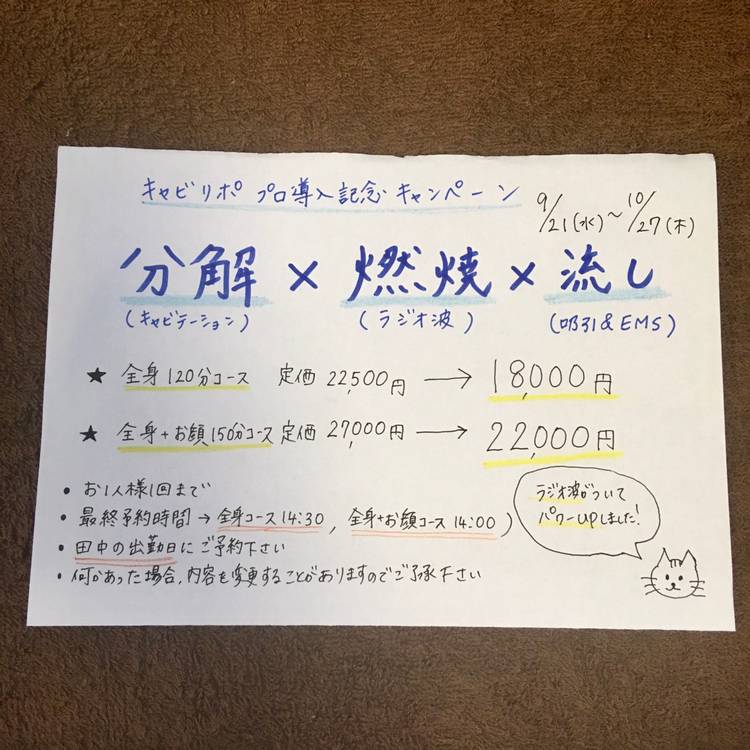 キャビリポ プロ導入記念キャンペーン
9/21(水)～10/27(木)
分解 × 燃焼 × 流し
(キャビテーション) (ラジオ波) (吸引&EMS)
★ 全身120分コース 定価 22,500円 → 18,000円
★ 全身+お顔150分コース 定価 27,000円 → 22,000円
• お1人様1回まで
• 最終予約時間→全身コース14:30, 全身+お顔コース14:00)
• 田中の出勤日にご予約下さい
• 何かあった場合、内容を変更することがありますのでご了承下さい
ラジオ波がついて
パワーUPしました!